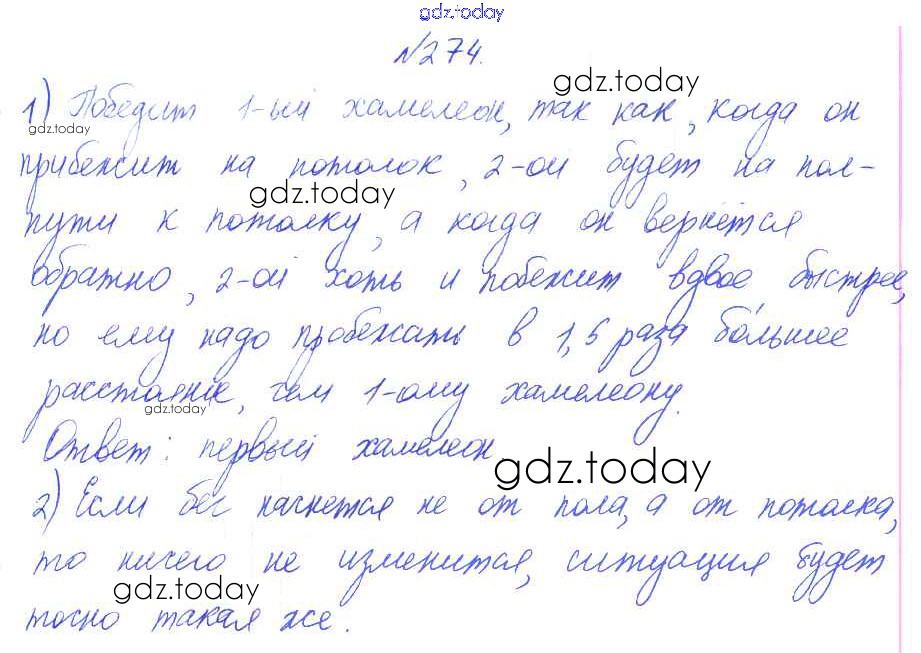 gdz.today
№274.
gdz.today
1) Победит 1-ый хамелеон, так как, когда он
gdz.today
прибежит на потолок, 2-ой будет на пол-
gdz.today
пути к потолку, а когда он вернётся
обратно, 2-ой хоть и побежит вдвое быстрее,
но ему надо пробежать в 1,5 раза бо́льшее
расстояние, чем 1-ому хамелеону.
gdz.today
Ответ: первый хамелеон.
gdz.today
2) Если бег начнется не от пола, а от потолка,
то ничего не изменится, ситуация будет
gdz.today
точно такая же.